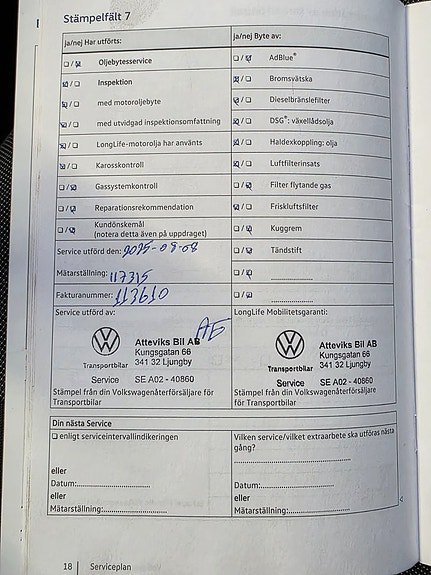 Stämpelfält 7
ja/nej Har utförts:
ja/nej Byte av:
Oljebytesservice
AdBlue®
Inspektion
Bromsvätska
med motoroljebyte
Dieselbränslefilter
med utvidgad inspektionsomfattning
DSG®: växellådsolja
LongLife-motorolja har använts
Haldexkoppling: olja
Karosskontroll
Luftfilterinsats
Gassystemkontroll
Filter flytande gas
Reparationsrekommendation
Friskluftsfilter
Kundönskemål
(notera detta även på uppdraget)
Kuggrem
Service utförd den: 2025-09-08
Tändstift
Mätarställning: 117315
Fakturanummer: 113610
Service utförd av:
LongLife Mobilitetsgaranti:
AE
Atteviks Bil AB
Kungsgatan 66
341 32 Ljungby
Transportbilar
Service SE A02 - 40860
Atteviks Bil AB
Kungsgatan 66
341 32 Ljungby
Transportbilar
Service SE A02 - 40860
Stämpel från din Volkswagenåterförsäljare för
Transportbilar
Stämpel från din Volkswagenåterförsäljare
för Transportbilar
Din nästa Service
enligt serviceintervallindikeringen
Vilken service/vilket extraarbete ska utföras nästa
gång?
eller
Datum:
eller
Mätarställning:
Datum:
eller
Mätarställning:
18 Serviceplan